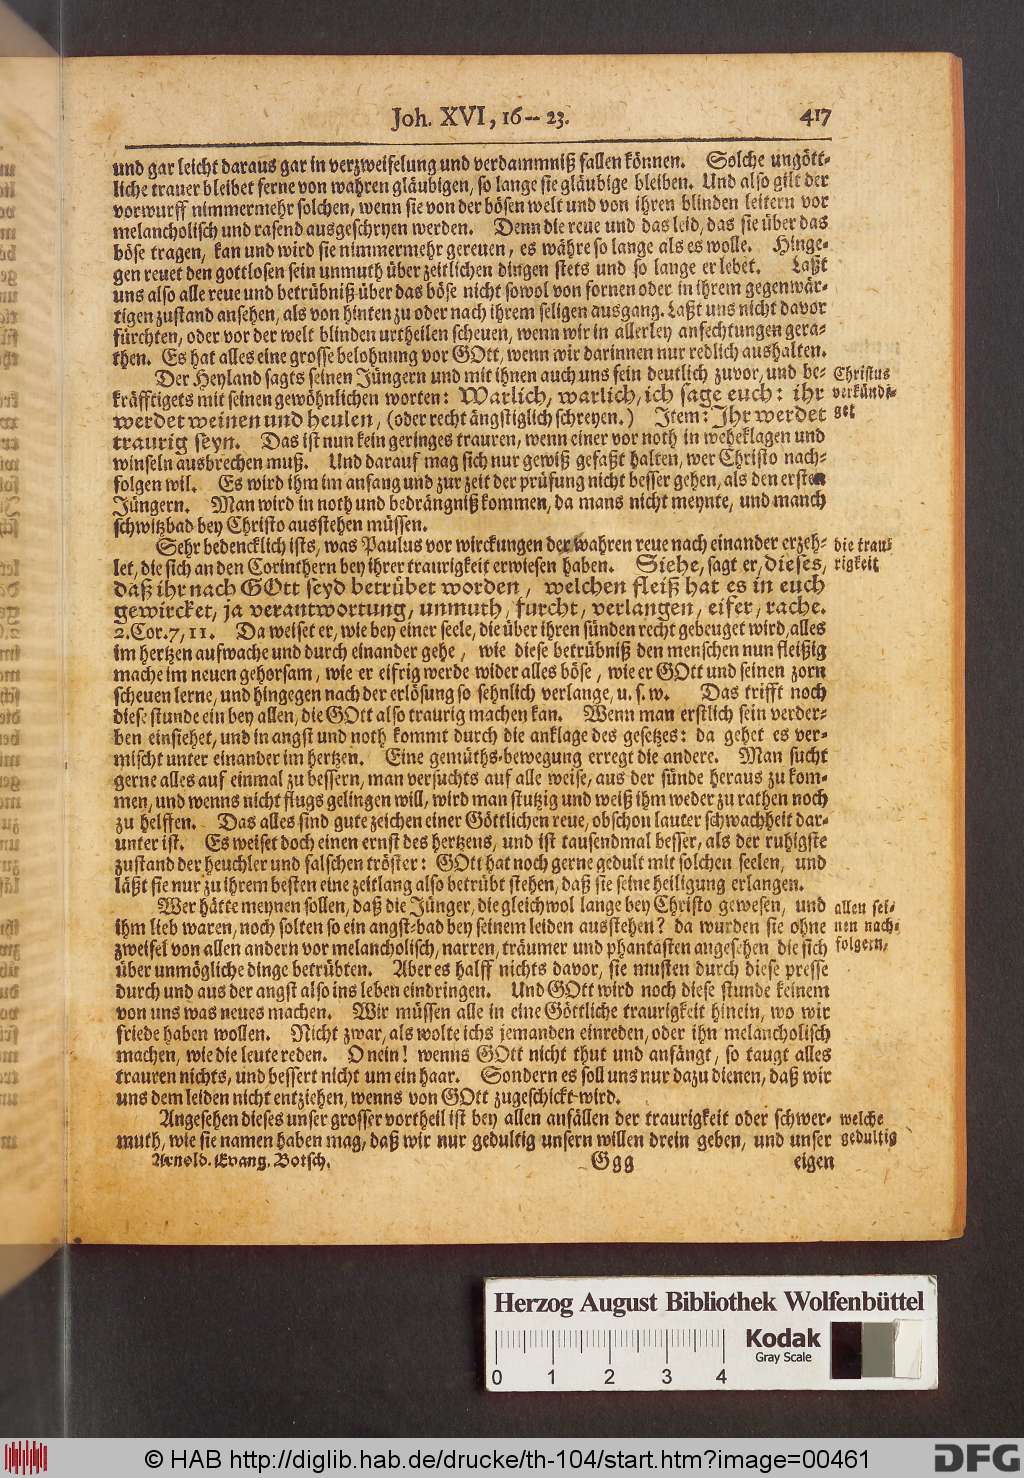 Joh. XVI, 16-- 23. 417
und gar leicht daraus gar in verzweifelung und verdammniß fallen können. Solche ungött-
liche trauer bleibet ferne von wahren gläubigen, so lange sie gläubige bleiben. Und also gilt der
vorwurff nimmermehr solchen, wenn sie von der bösen welt und von ihren blinden leitern vor
melancholisch und rasend ausgeschryen werden. Denn die reue und das leid, das sie über das
böse tragen, kan und wird sie nimmermehr gereuen, es währe so lange als es wolle. Hinge-
gen reuet den gottlosen sein unmuth über zeitlichen dingen stets und so lange er lebet. Laßt
uns also alle reue und betrübniß über das böse nicht sowol von fornen oder in ihrem gegenwär-
tigen zustand ansehen, als von hinten zu oder nach ihrem seligen ausgang. Laßt uns nicht davor
fürchten, oder vor der welt blinden urtheilen scheuen, wenn wir in allerley anfechtungen gera-
then. Es hat alles eine grosse belohnung vor GOtt, wenn wir darinnen nur redlich aushalten.
Der Heyland sagts seinen Jüngern und mit ihnen auch uns fein deutlich zuvor, und be-
kräfftigets mit seinen gewöhnlichen worten: Warlich, warlich, ich sage euch: ihr
werdet weinen und heulen, (oder recht ängstiglich schreyen.) Item: Ihr werdet
traurig seyn. Das ist nun kein geringes trauren, wenn einer vor noth in weheklagen und
winseln ausbrechen muß. Und darauf mag sich nur gewiß gefaßt halten, wer Christo nach-
folgen wil. Es wird ihm im anfang und zur zeit der prüfung nicht besser gehen, als den ersten
Jüngern. Man wird in noth und bedrängniß kommen, da mans nicht meynte, und manch
schwitzbad bey Christo ausstehen müssen.
Christus
verkündi-
get
Sehr bedencklich ists, was Paulus vor wirckungen der wahren reue nach einander erzeh-
let, die sich an den Corinthern bey ihrer traurigkeit erwiesen haben. Siehe, sagt er, dieses,
daß ihr nach GOtt seyd betrübet worden, welchen fleiß hat es in euch
gewircket, ja verantwortung, unmuth, furcht, verlangen, eifer, rache.
2. Cor. 7, 11. Da weiset er, wie bey einer seele, die über ihren sünden recht gebeuget wird, alles
im hertzen aufwache und durch einander gehe, wie diese betrübniß den menschen nun fleißig
mache im neuen gehorsam, wie er eifrig werde wider alles böse, wie er GOtt und seinen zorn
scheuen lerne, und hingegen nach der erlösung so sehnlich verlange, u. s. w. Das trifft noch
diese stunde ein bey allen, die GOtt also traurig machen kan. Wenn man erstlich sein verder-
ben einsiehet, und in angst und noth kommt durch die anklage des gesetzes: da gehet es ver-
mischt unter einander im hertzen. Eine gemüths-bewegung erregt die andere. Man sucht
gerne alles auf einmal zu bessern, man versuchts auf alle weise, aus der sünde heraus zu kom-
men, und wenns nicht flugs gelingen will, wird man stutzig und weiß ihm weder zu rathen noch
zu helffen. Das alles sind gute zeichen einer Göttlichen reue, obschon lauter schwachheit dar-
unter ist. Es weiset doch einen ernst des hertzens, und ist tausendmal besser, als der ruhigste
zustand der heuchler und falschen tröster: GOtt hat noch gerne gedult mit solchen seelen, und
läßt sie nur zu ihrem besten eine zeitlang also betrübt stehen, daß sie seine heiligung erlangen.
die trau-
rigkeit
Wer hätte meynen sollen, daß die Jünger, die gleichwol lange bey Christo gewesen, und
ihm lieb waren, noch solten so ein angst-bad bey seinem leiden ausstehen? da wurden sie ohne
zweifel von allen andern vor melancholisch, narren, träumer und phantasten angesehen die sich
über unmögliche dinge betrübten. Aber es halff nichts davor, sie musten durch diese presse
durch und aus der angst also ins leben eindringen. Und GOtt wird noch diese stunde keinem
von uns was neues machen. Wir müssen alle in eine Göttliche traurigkeit hinein, wo wir
friede haben wollen. Nicht zwar, als wolte ichs jemanden einreden, oder ihn melancholisch
machen, wie die leute reden. O nein! wenns GOtt nicht thut und anfängt, so taugt alles
trauren nichts, und bessert nicht um ein haar. Sondern es soll uns nur dazu dienen, daß wir
uns dem leiden nicht entziehen, wenns von GOtt zugeschickt wird.
allen sei-
nen nach-
folgern,
Angesehen dieses unser grosser vortheil ist bey allen anfällen der traurigkeit oder schwer-
muth, wie sie namen haben mag, daß wir nur gedultig unsern willen drein geben, und unser
welche
gedultig
Arnold. Evang. Botsch. Ggg eigen
Herzog August Bibliothek Wolfenbüttel
0 1 2 3 4
Kodak
Gray Scale
© HAB http://diglib.hab.de/drucke/th-104/start.htm?image=00461
DFG